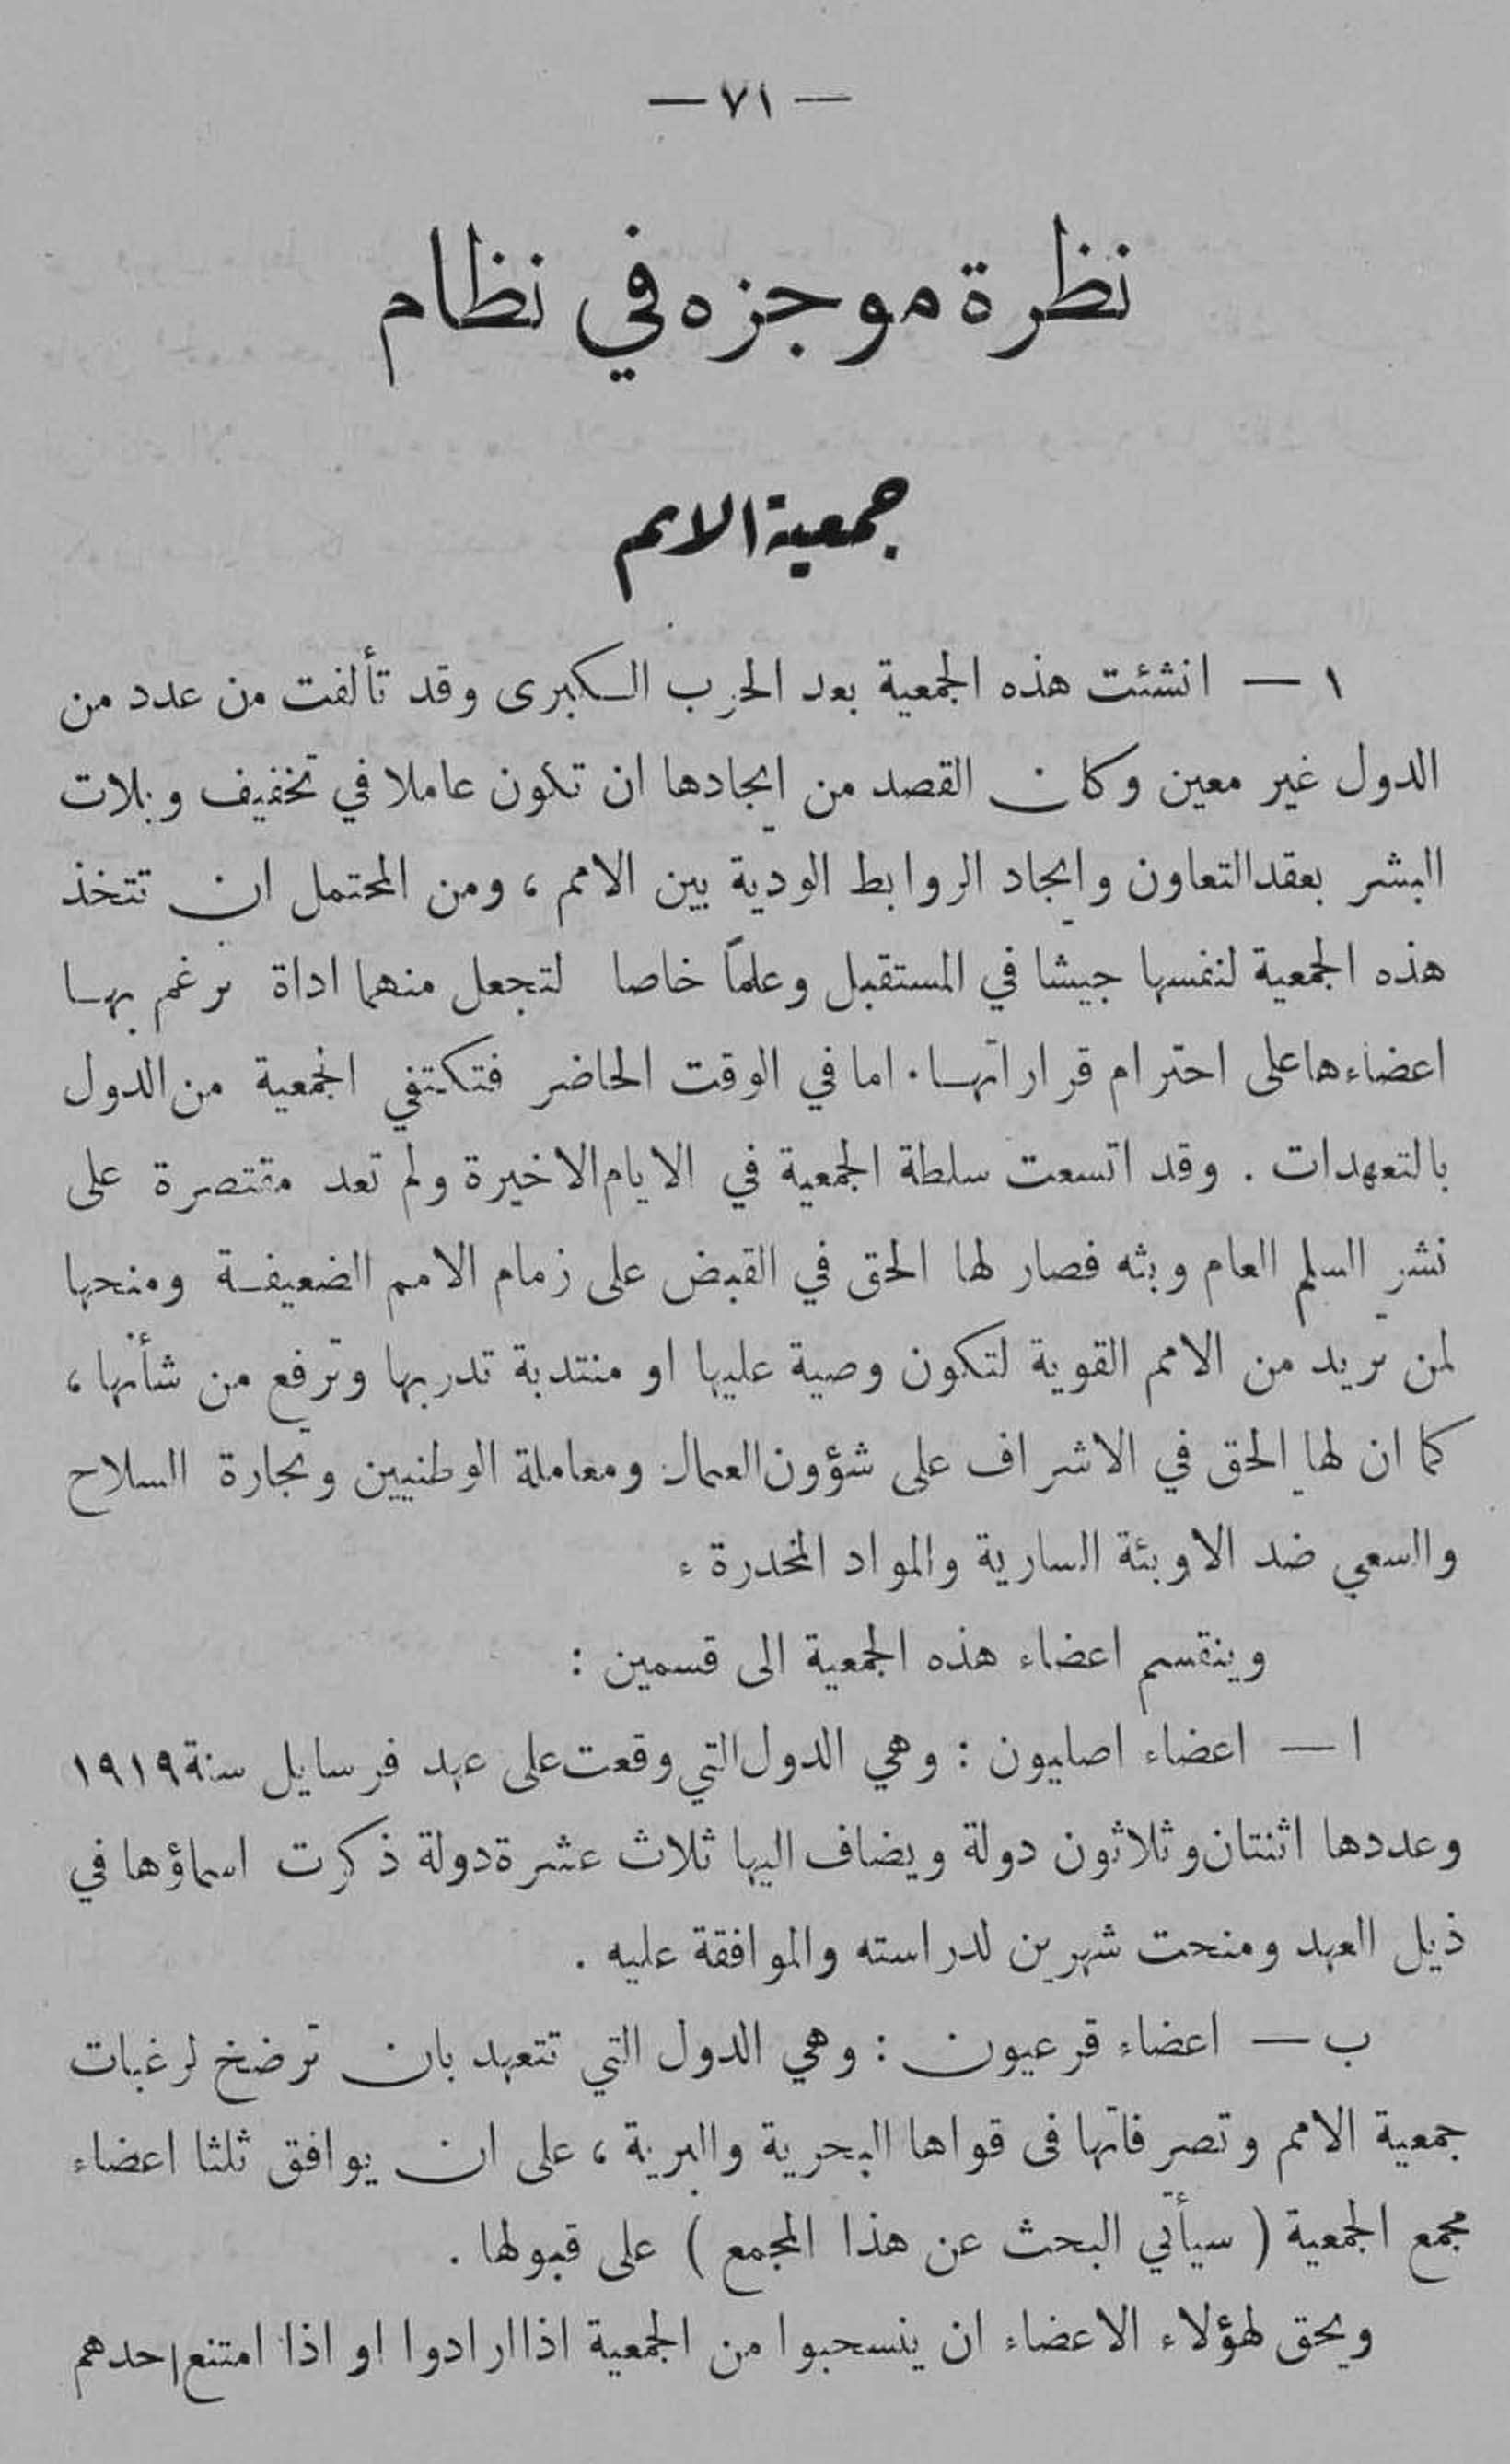 — ٧١ —
نظرة موجزه في نظام
جمعية الامم
١ — انشئت هذه الجمعية بعد الحرب الكبرى وقد تألفت من عدد من
الدول غير معين وكان القصد من ايجادها ان تكون عاملا في تخفيف ويلات
البشر بعقد التعاون وايجاد الروابط الودية بين الامم ، ومن المحتمل ان تتخذ
هذه الجمعية لنفسها جيشا في المستقبل وعلماً خاصا لتجعل منهما اداة ترغم بها
اعضاءها على احترام قراراتها . اما في الوقت الحاضر فتكتفي الجمعية من الدول
بالتعهدات . وقد اتسعت سلطة الجمعية في الايام الاخيرة ولم تعد مقتصرة على
نشر السلم العام وبثه فصار لها الحق في القبض على زمام الامم الضعيفة ومنحها
لمن تريد من الامم القوية لتكون وصية عليها او منتدبة تدربها وترفع من شأنها ،
كما ان لها الحق في الاشراف على شؤون العمال ومعاملة الوطنيين وتجارة السلاح
والسعي ضد الاوبئة السارية والمواد المخدرة ،
وينقسم اعضاء هذه الجمعية الى قسمين :
ا — اعضاء اصليون : وهي الدول التي وقعت على عهد فرسايل سنة ١٩١٩
وعددها اثنتان وثلاثون دولة ويضاف اليها ثلاث عشرة دولة ذكرت اسماؤها في
ذيل العهد ومنحت شهرين لدراسته والموافقة عليه .
ب — اعضاء قرعيون : وهي الدول التي تتعهد بان ترضخ لرغبات
جمعية الامم وتصرفاتها فى قواها البحرية والبرية ، على ان يوافق ثلثا اعضاء
مجمع الجمعية ( سيأتي البحث عن هذا المجمع ) على قبولها .
ويحق لهؤلاء الاعضاء ان ينسحبوا من الجمعية اذا ارادوا او اذا امتنع احدهم